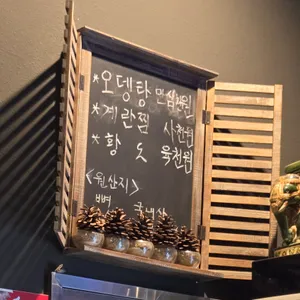 *오뎅탕 만삼천원
*계란찜 사천원
*황도 육천원
<원산지>
뼈 국내산